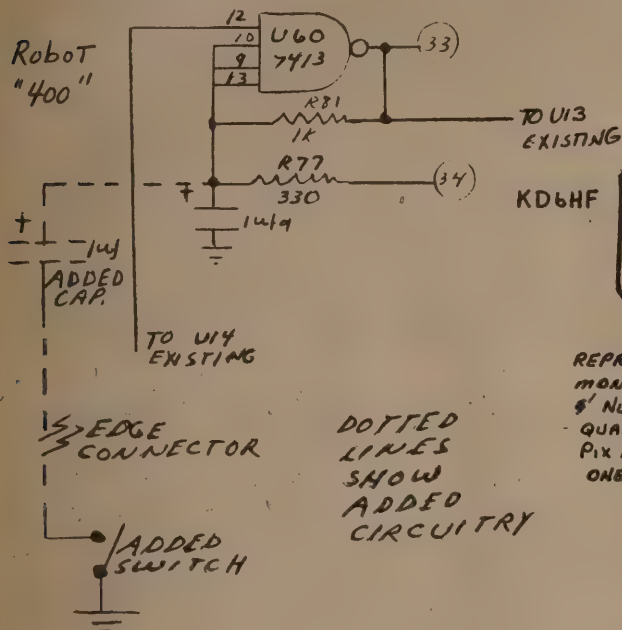 Robot
"400"
12
10
9
13
U60
7413
33
R81
1K
TO U13
EXISTING
R77
330
34
KD6HF
+
1uf
+
1uf
ADDED
CAP.
TO U14
EXISTING
EDGE
CONNECTOR
DOTTED
LINES
SHOW
ADDED
CIRCUITRY
ADDED
SWITCH
QUA
PIX
ONE